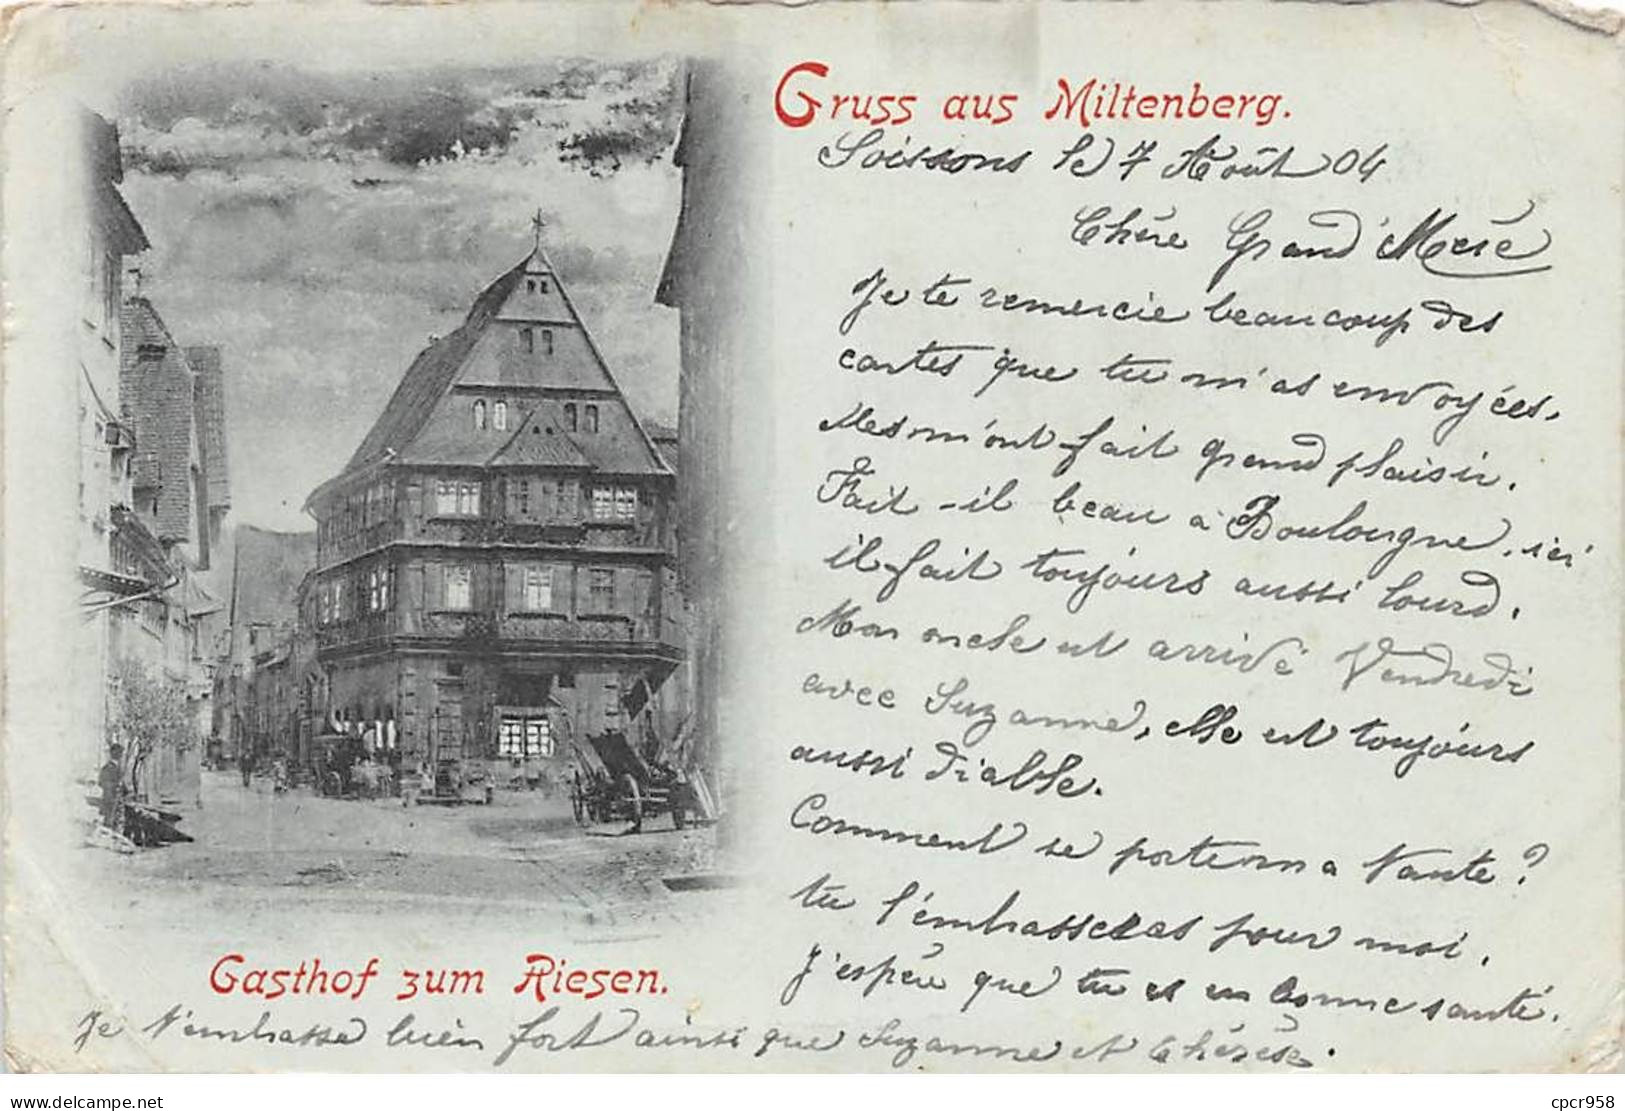 Gruss aus Miltenberg.
Soissons le 7 Août 04
Chère Grand'Mère
Je te remercie beaucoup des
cartes que tu m'as envoyées.
Elles m'ont fait grand plaisir.
Fait-il beau à Boulougne, ici
il fait toujours aussi lourd.
Mon oncle est arrivé Vendredi
avec Suzanne, elle est toujours
aussi diable.
Comment se porte ma Tante?
tu l'embrasseras pour moi.
J'espère que tu es en bonne santé.
Gasthof zum Riesen.
Je t'embrasse bien fort ainsi que Suzanne et Thérèse.
delcampe.net
cpcr958